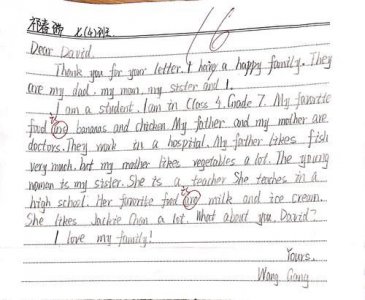 七(4)班
16
Dear David.
Thank you for your letter. I have a happy family. They
are my dad, my mom, my sister and I.
I am a student. I am in Class 4. Grade 7. My favorite
is
food are bananas and chicken My father and my mother are
doctors. They work in a hospital. My father likes fish
very much. but my mother likes vegetables a lot. The young
woman is my sister. She is a teacher She teaches in a
is
high school. Her favorite food are milk and ice cream.
She likes Jackie Chan a lot. What about you. David?
I love my family!
Yours.
Wang Gang